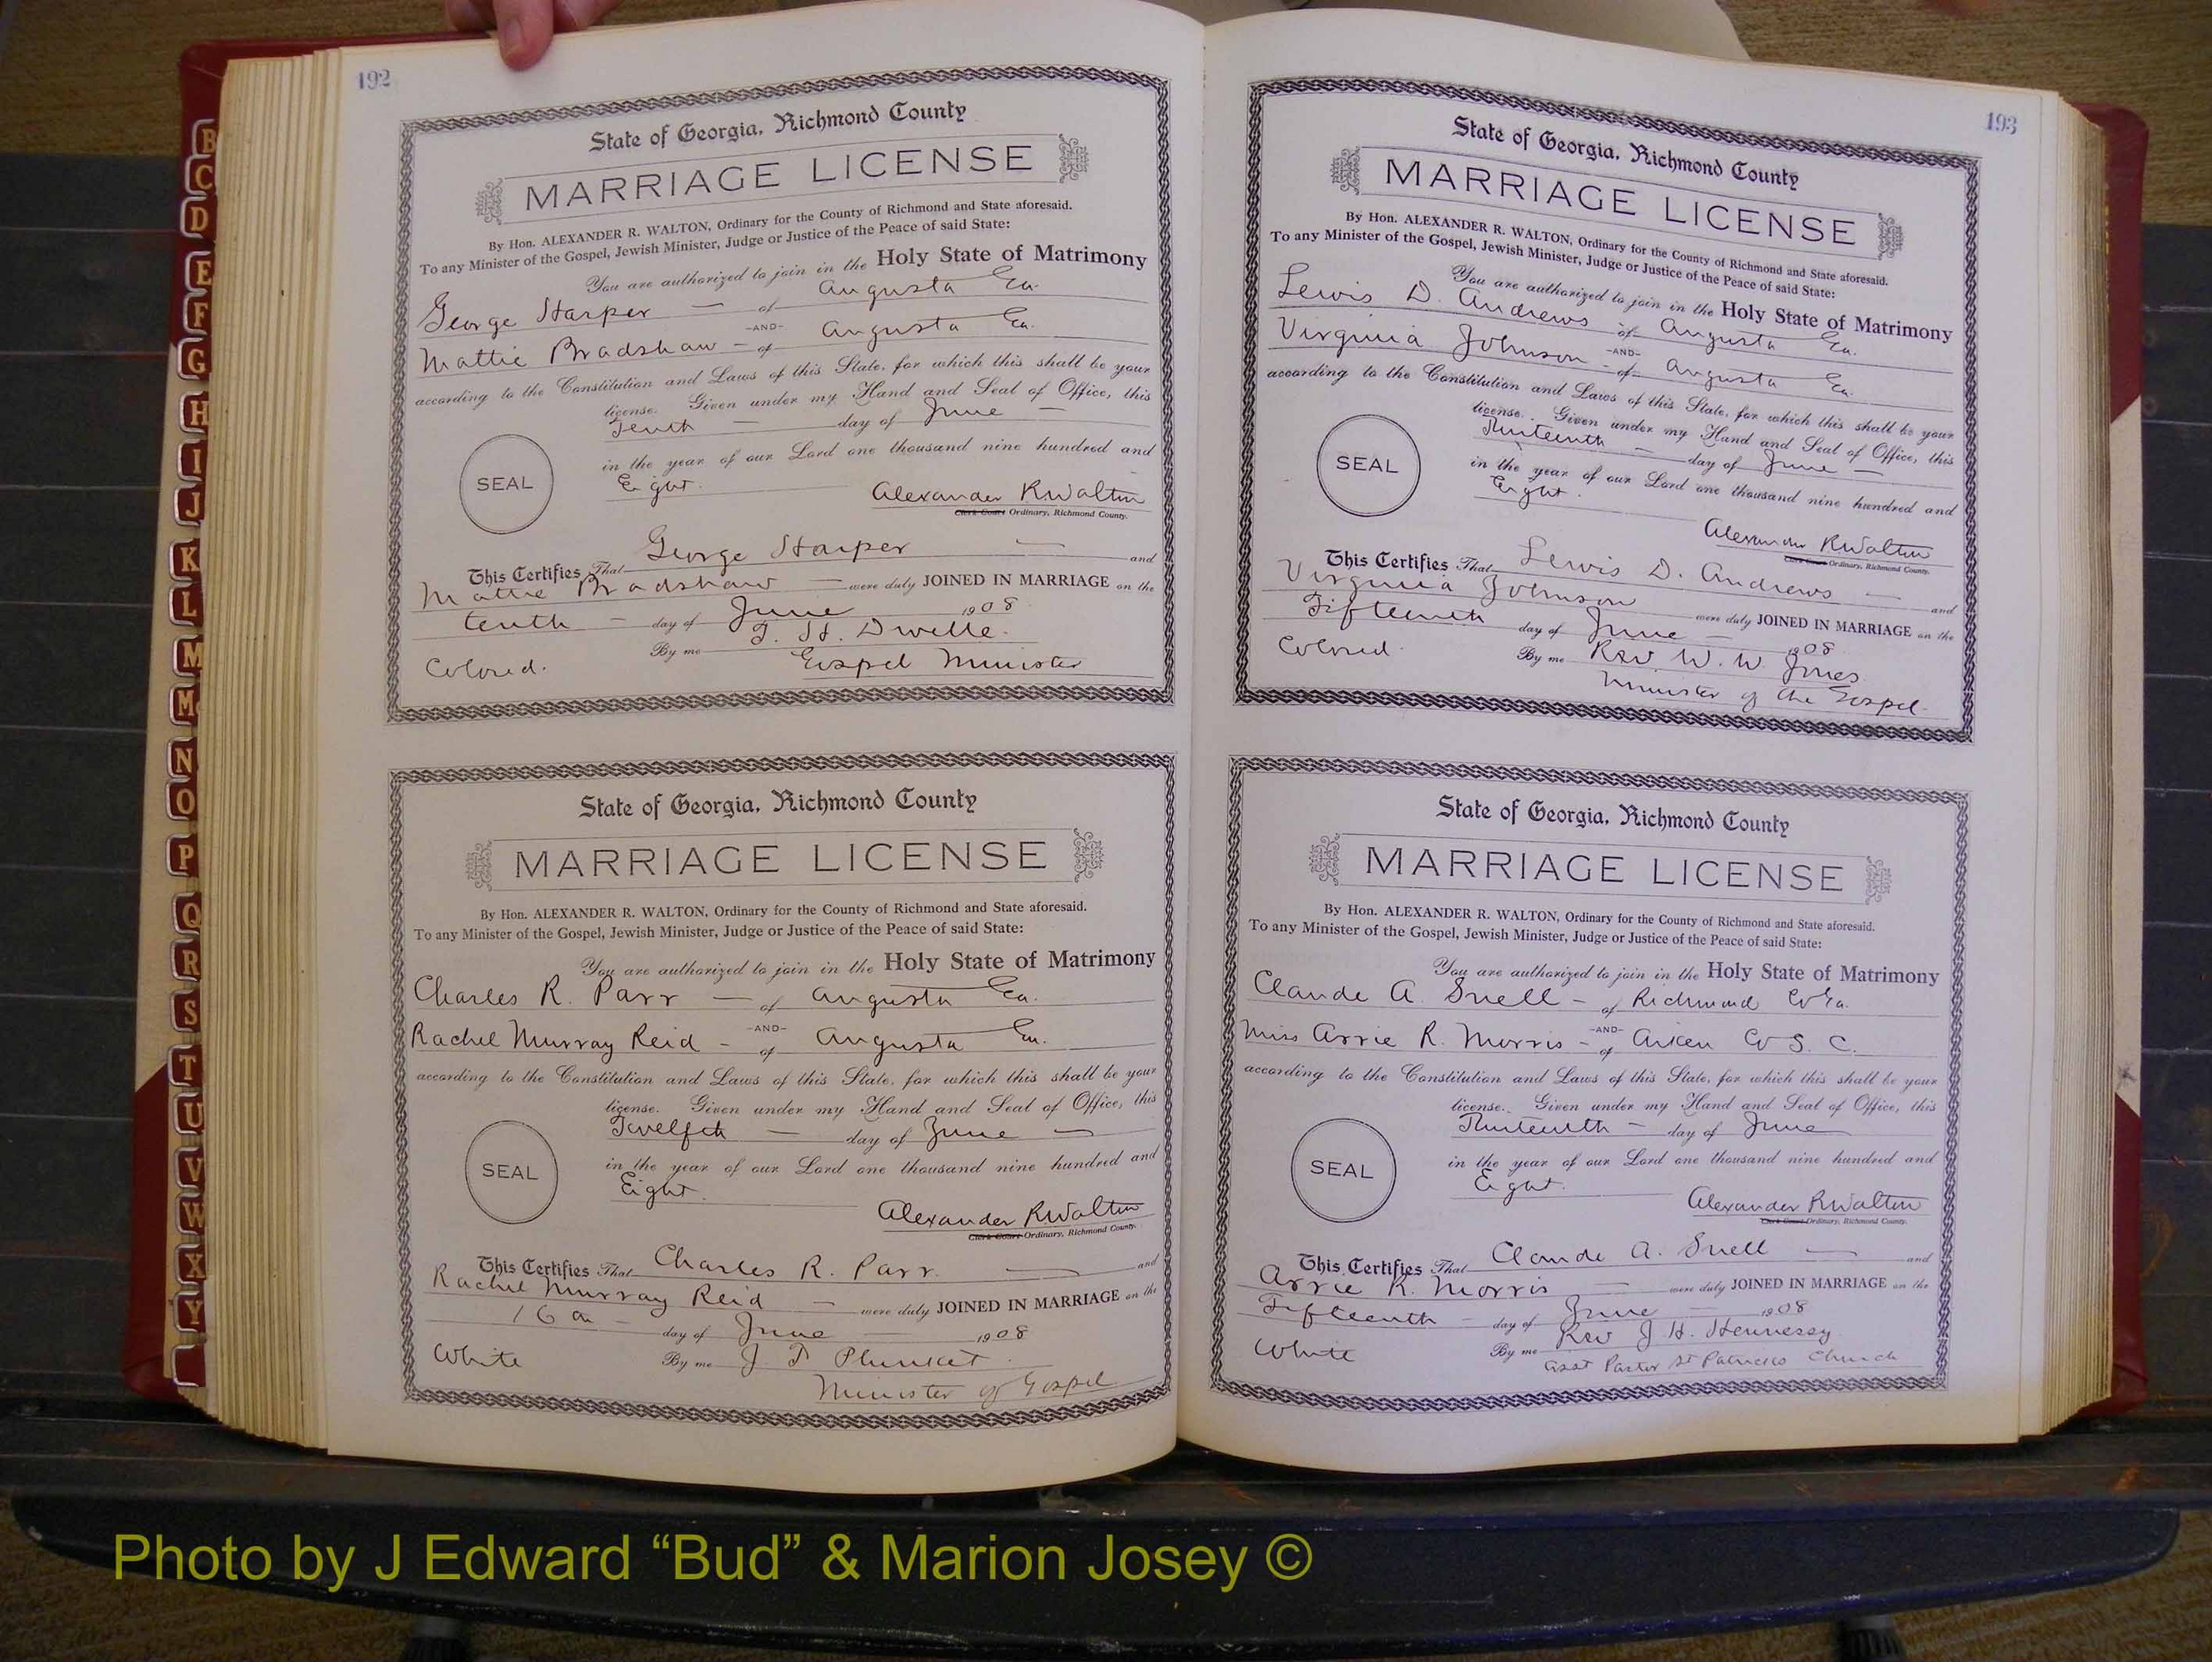 192
State of Georgia, Richmond County
MARRIAGE LICENSE
By Hon. ALEXANDER R. WALTON, Ordinary for the County of Richmond and State aforesaid.
To any Minister of the Gospel, Jewish Minister, Judge or Justice of the Peace of said State:
You are authorized to join in the Holy State of Matrimony
George Harper — of Augusta Ga.
-AND-
Mattie Bradshaw - of Augusta Ga.
according to the Constitution and Laws of this State, for which this shall be your
license. Given under my Hand and Seal of Office, this
Tenth — day of June —
in the year of our Lord one thousand nine hundred and
SEAL
Eight.
Alexander R Walton
Clerk Court Ordinary, Richmond County.
This Certifies That George Harper — and
Mattie Bradshaw — were duly JOINED IN MARRIAGE on the
tenth — day of June 1908
By me T. H. Dwelle.
Colored. Gospel Minister
State of Georgia, Richmond County
MARRIAGE LICENSE
By Hon. ALEXANDER R. WALTON, Ordinary for the County of Richmond and State aforesaid.
To any Minister of the Gospel, Jewish Minister, Judge or Justice of the Peace of said State:
You are authorized to join in the Holy State of Matrimony
Charles R. Parr — of Augusta Ga.
-AND-
Rachel Murray Reid - of Augusta Ga.
according to the Constitution and Laws of this State, for which this shall be your
license. Given under my Hand and Seal of Office, this
Twelfth — day of June —
in the year of our Lord one thousand nine hundred and
SEAL
Eight.
Alexander R Walton
Clerk Court Ordinary, Richmond County.
This Certifies That Charles R. Parr. — and
Rachel Murray Reid — were duly JOINED IN MARRIAGE on the
16 — day of June 1908
White By me J T Plunket.
Minister of Gospel
193
State of Georgia, Richmond County
MARRIAGE LICENSE
By Hon. ALEXANDER R. WALTON, Ordinary for the County of Richmond and State aforesaid.
To any Minister of the Gospel, Jewish Minister, Judge or Justice of the Peace of said State:
You are authorized to join in the Holy State of Matrimony
Lewis D. Andrews of Augusta Ga.
-AND-
Virginia Johnson - of Augusta Ga.
according to the Constitution and Laws of this State, for which this shall be your
license. Given under my Hand and Seal of Office, this
Thirteenth — day of June —
in the year of our Lord one thousand nine hundred and
SEAL
Eight.
Alexander R Walton
Clerk Court Ordinary, Richmond County.
This Certifies That Lewis D. Andrews — and
Virginia Johnson were duly JOINED IN MARRIAGE on the
Fifteenth day of June — 1908
Colored. By me Rev W. W. Jones
Minister of the Gospel.
State of Georgia, Richmond County
MARRIAGE LICENSE
By Hon. ALEXANDER R. WALTON, Ordinary for the County of Richmond and State aforesaid.
To any Minister of the Gospel, Jewish Minister, Judge or Justice of the Peace of said State:
You are authorized to join in the Holy State of Matrimony
Claude A. Snell - of Richmond Co Ga.
-AND-
Miss Arrie R. Morris - of Aiken Co S. C.
according to the Constitution and Laws of this State, for which this shall be your
license. Given under my Hand and Seal of Office, this
Thirteenth — day of June
in the year of our Lord one thousand nine hundred and
SEAL
Eight.
Alexander R Walton
Clerk Court Ordinary, Richmond County.
This Certifies That Claude A. Snell — and
Arrie R. Morris — were duly JOINED IN MARRIAGE on the
Fifteenth - day of June — 1908
White By me Rev J H. Hennessy
asst Pastor St Patricks Church
B
C
D
E
F
G
H
I
J
K
L
M
Mc
N
O
P
Q
R
S
T
U
V
W
X
Y
Photo by J Edward “Bud” & Marion Josey ©